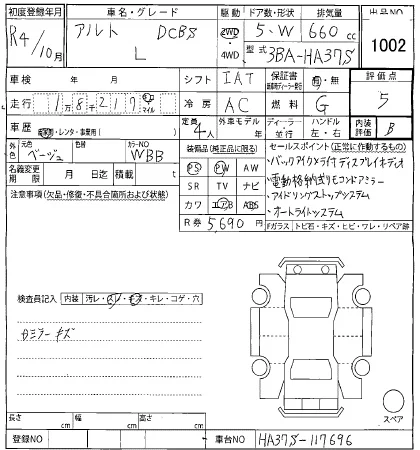 初度登録年月 車名・グレード 駆動 ドア数・形状 排気量 出品NO
R4/10月 アルト DCBS L 2WD・4WD 5・W 660cc 1002
型式 3BA-HA37S
車検 年 月 シフト IAT 保証書 有・無 燃料 G 評価点 5
走行 1万8千217 km マイル 冷房 AC
車歴 自家用・レンタ・事業用( ) 定員 4人 外車モデル 年 ディーラー・並行 ハンドル 左・右 内装評価 B
外色 元色 ベージュ 色替 カラーNO WBB
名義変更期限 月 日迄 積載 t
装備品(純正品に限る)
PS PW AW
SR TV ナビ
カワ エアB ABS
R券 5,690円
セールスポイント(正常に作動するもの)
・バックアイカメラ付ディスプレイオーディオ
・電動格納式リモコンドアミラー
・アイドリングストップシステム
・オートライトシステム
Fガラス トビ石・キズ・ヒビ・ワレ・リペア跡
注意事項(欠品・修復・不具合箇所および状態)
検査員記入 内装 汚レ・スレ・キズ・キレ・コゲ・穴
ミラーキズ
スペア
長さ cm 幅 cm 高さ cm
登録NO 車台NO HA37S-117696